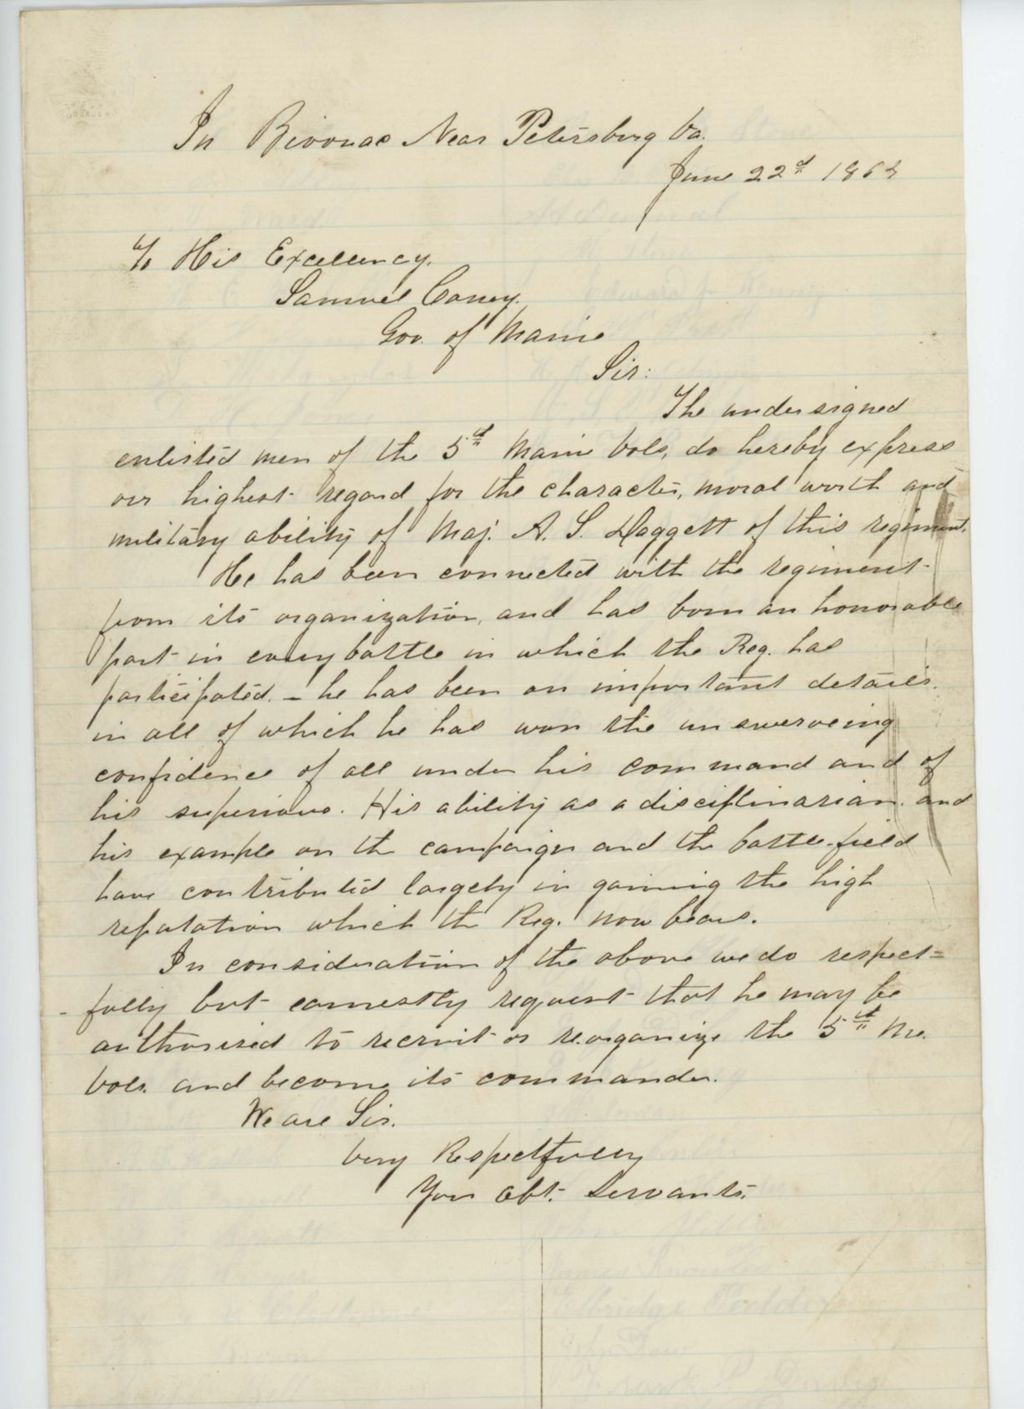 In Bivouac Near Petersburg Va.
June 22d 1864
To His Excellency.
Samuel Coney.
Gov. of Maine
Sir:
The undersigned
enlisted men of the 5th Maine Vols, do hereby express
our highest regard for the character, moral worth and
military ability of Maj. A. S. Daggett of this regiment.
He has been connected with the regiment
from its organization, and has born an honorable
part in every battle in which the Reg. has
participated. – he has been on important details.
in all of which he has won the unswerveing
confidence of all under his command and of
his superiors. His ability as a disciplinarian. and
his example on the campaign and the battle-field
have contributed largely in gaining the high
reputation which the Reg. now bears.
In consideration of the above we do respect=
fully but earnestly request that he may be
authorised to recruit or reorganize the 5th Me.
Vols. and become its commander.
We are Sir.
Very Respectfully
Your Obt. Servants.